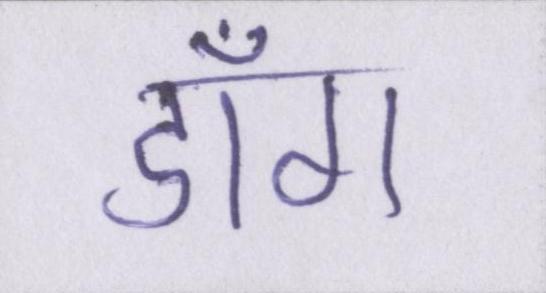 डाँग